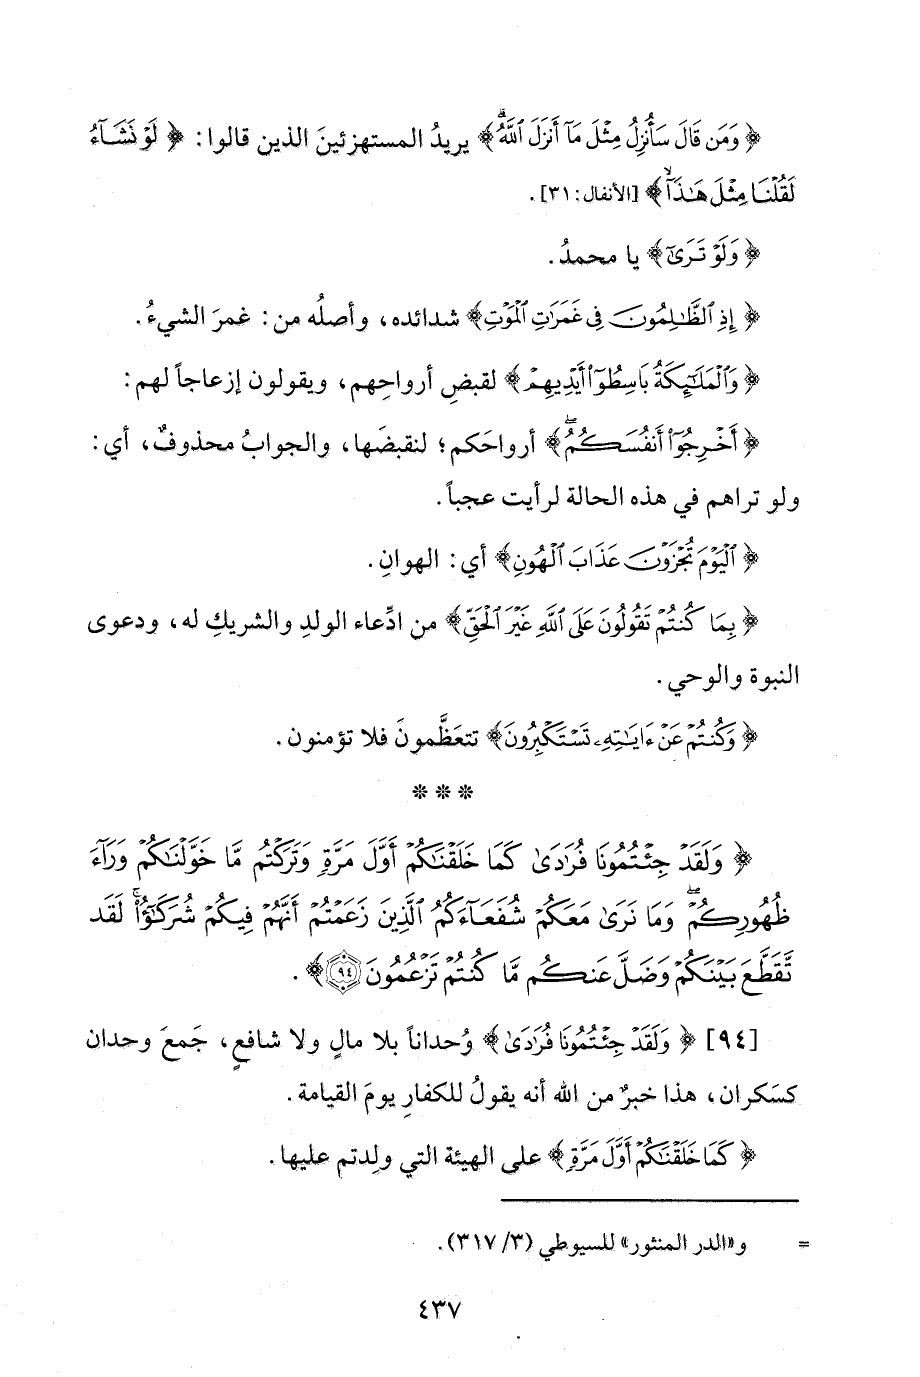 ﴿ وَمَن قَالَ سَأُنزِلُ مِثْلَ مَآ أَنزَلَ ٱللَّهُۗ﴾ يريدُ المستهزئينَ الذين قالوا: ﴿ لَوْ نَشَآءُ
لَقُلْنَا مِثْلَ هَٰذَآۙ﴾ [الأنفال: ٣١].
﴿ وَلَوْ تَرَىٰٓ﴾ يا محمدُ.
﴿ إِذِ ٱلظَّٰلِمُونَ فِي غَمَرَٰتِ ٱلْمَوْتِ﴾ شدائده، وأصلُه من: غمرَ الشيءُ.
﴿ وَٱلْمَلَٰٓئِكَةُ بَاسِطُوٓا۟ أَيْدِيهِمْ﴾ لقبضِ أرواحِهم، ويقولون إزعاجاً لهم:
﴿ أَخْرِجُوٓا۟ أَنفُسَكُمُۖ﴾ أرواحَكم؛ لنقبضَها، والجوابُ محذوفٌ، أي:
ولو تراهم في هذه الحالة لرأيت عجباً.
﴿ ٱلْيَوْمَ تُجْزَوْنَ عَذَابَ ٱلْهُونِ﴾ أي: الهوانِ.
﴿ بِمَا كُنتُمْ تَقُولُونَ عَلَى ٱللَّهِ غَيْرَ ٱلْحَقِّ﴾ من ادِّعاء الولدِ والشريكِ له، ودعوى
النبوة والوحي.
﴿ وَكُنتُمْ عَنْ ءَايَٰتِهِۦ تَسْتَكْبِرُونَ﴾ تتعَظَّمونَ فلا تؤمنون.
* * *
﴿ وَلَقَدْ جِئْتُمُونَا فُرَٰدَىٰ كَمَا خَلَقْنَٰكُمْ أَوَّلَ مَرَّةٍ وَتَرَكْتُم مَّا خَوَّلْنَٰكُمْ وَرَآءَ
ظُهُورِكُمْۖ وَمَا نَرَىٰ مَعَكُمْ شُفَعَآءَكُمُ ٱلَّذِينَ زَعَمْتُمْ أَنَّهُمْ فِيكُمْ شُرَكَٰٓؤُا۟ۚ لَقَد
تَّقَطَّعَ بَيْنَكُمْ وَضَلَّ عَنكُم مَّا كُنتُمْ تَزْعُمُونَ ٩٤﴾.
[٩٤] ﴿ وَلَقَدْ جِئْتُمُونَا فُرَٰدَىٰ﴾ وُحداناً بلا مالٍ ولا شافعٍ، جَمعَ وحدان
كسَكران، هذا خبرٌ من الله أنه يقولُ للكفارِ يومَ القيامة.
﴿ كَمَا خَلَقْنَٰكُمْ أَوَّلَ مَرَّةٍ﴾ على الهيئة التي ولِدتم عليها.
= و«الدر المنثور» للسيوطي (٣/ ٣١٧).
٤٣٧